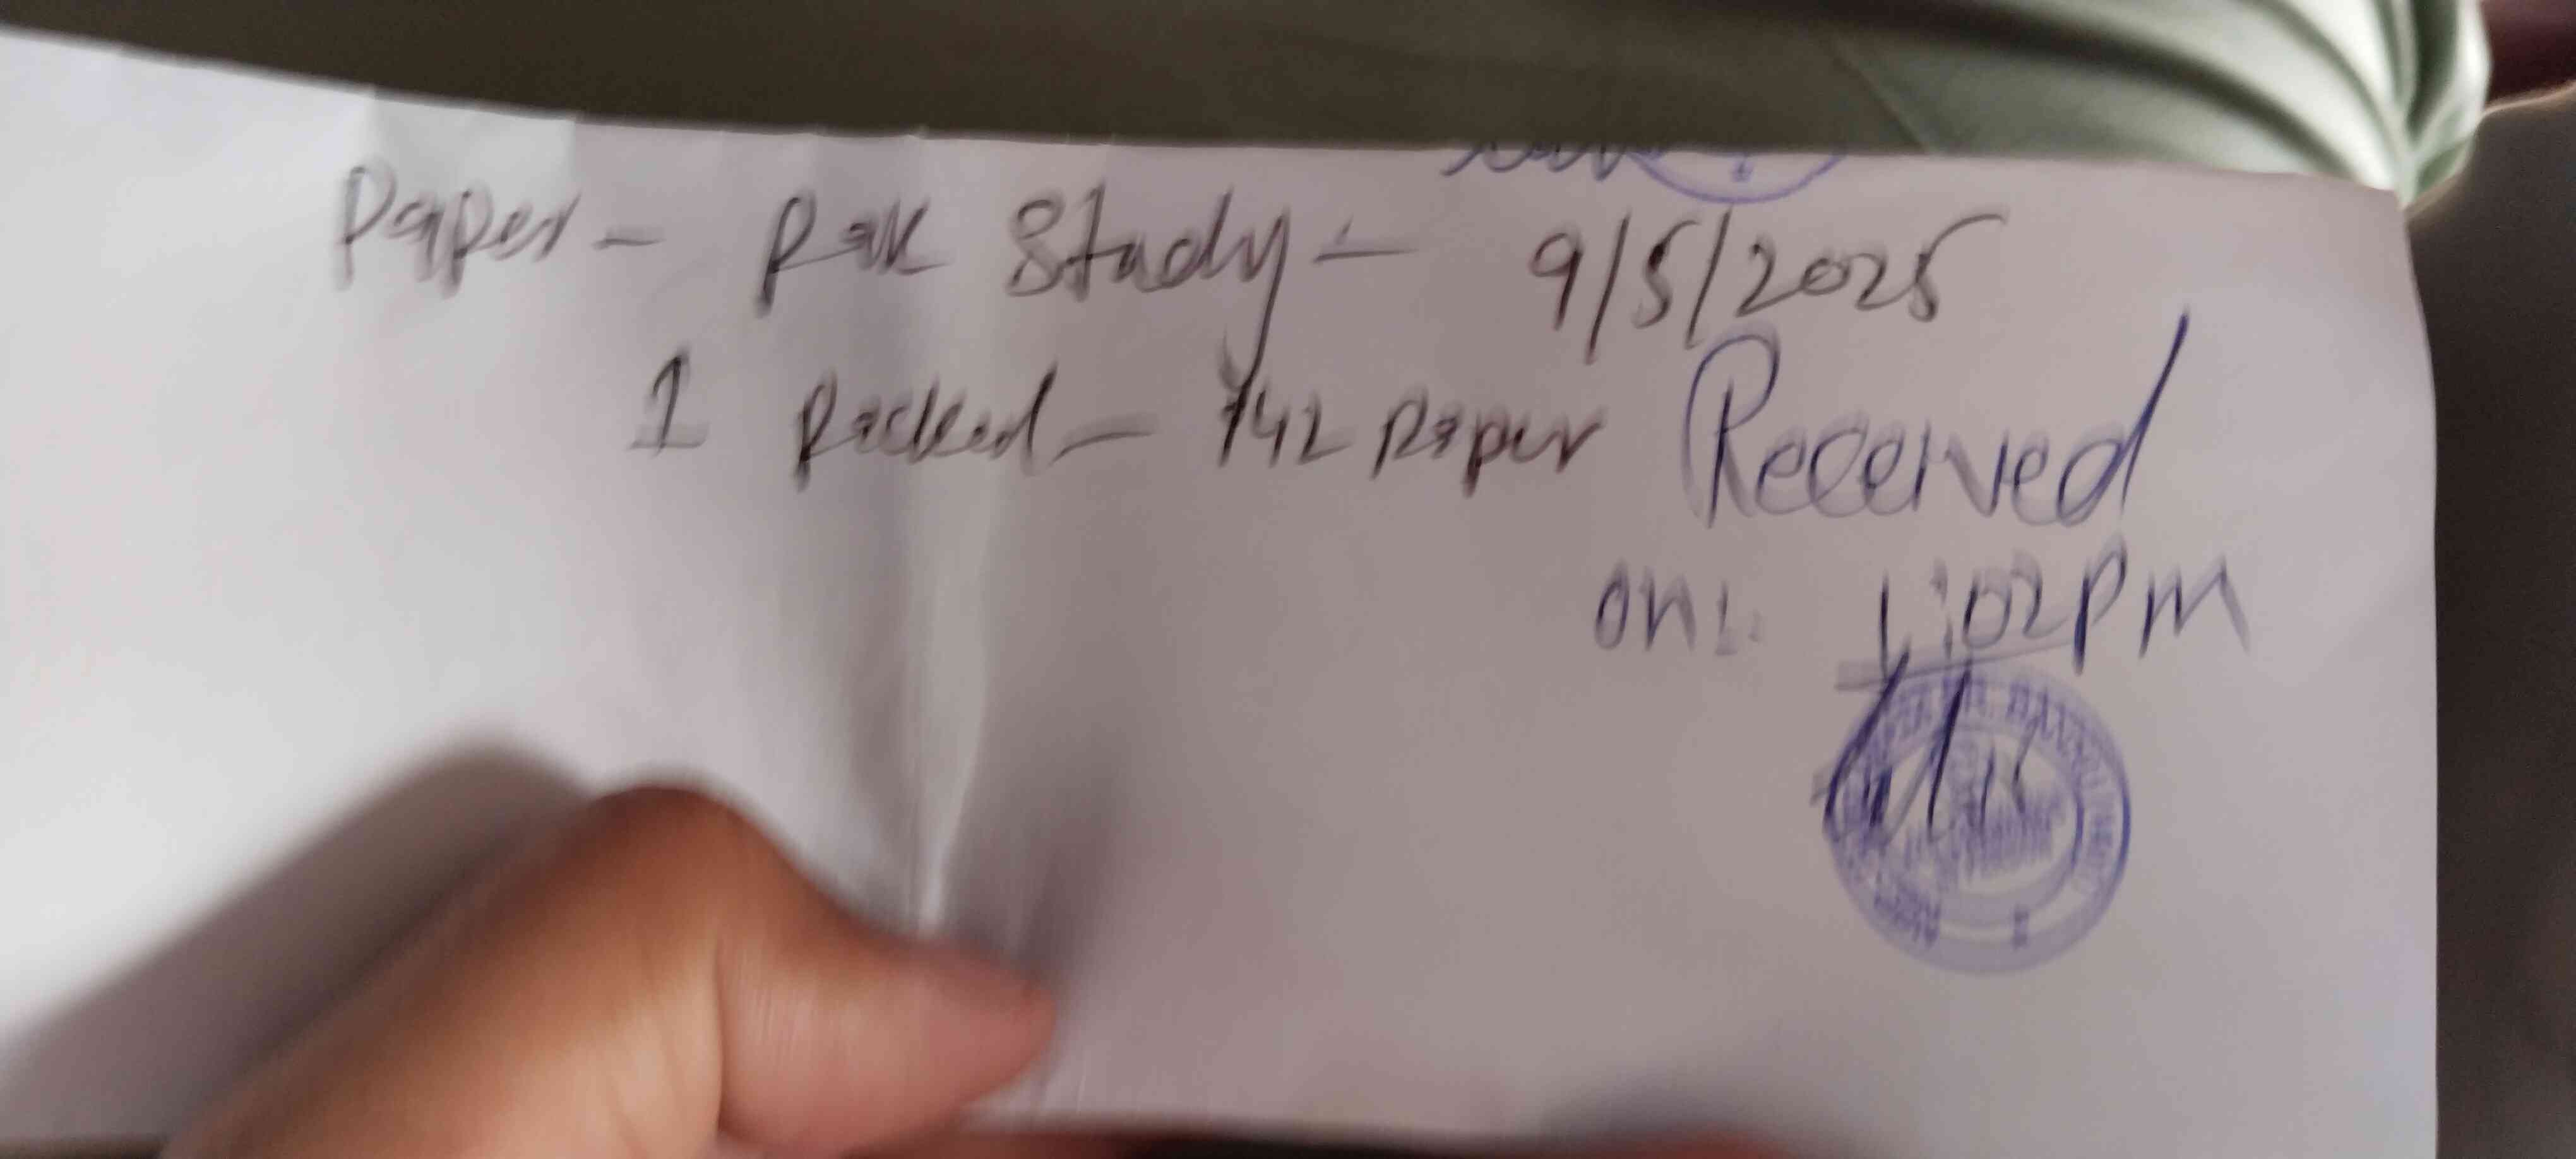 Paper - Pak Study - 9/5/2025
1 Packed - 142 Paper Received
on: 1:02 PM